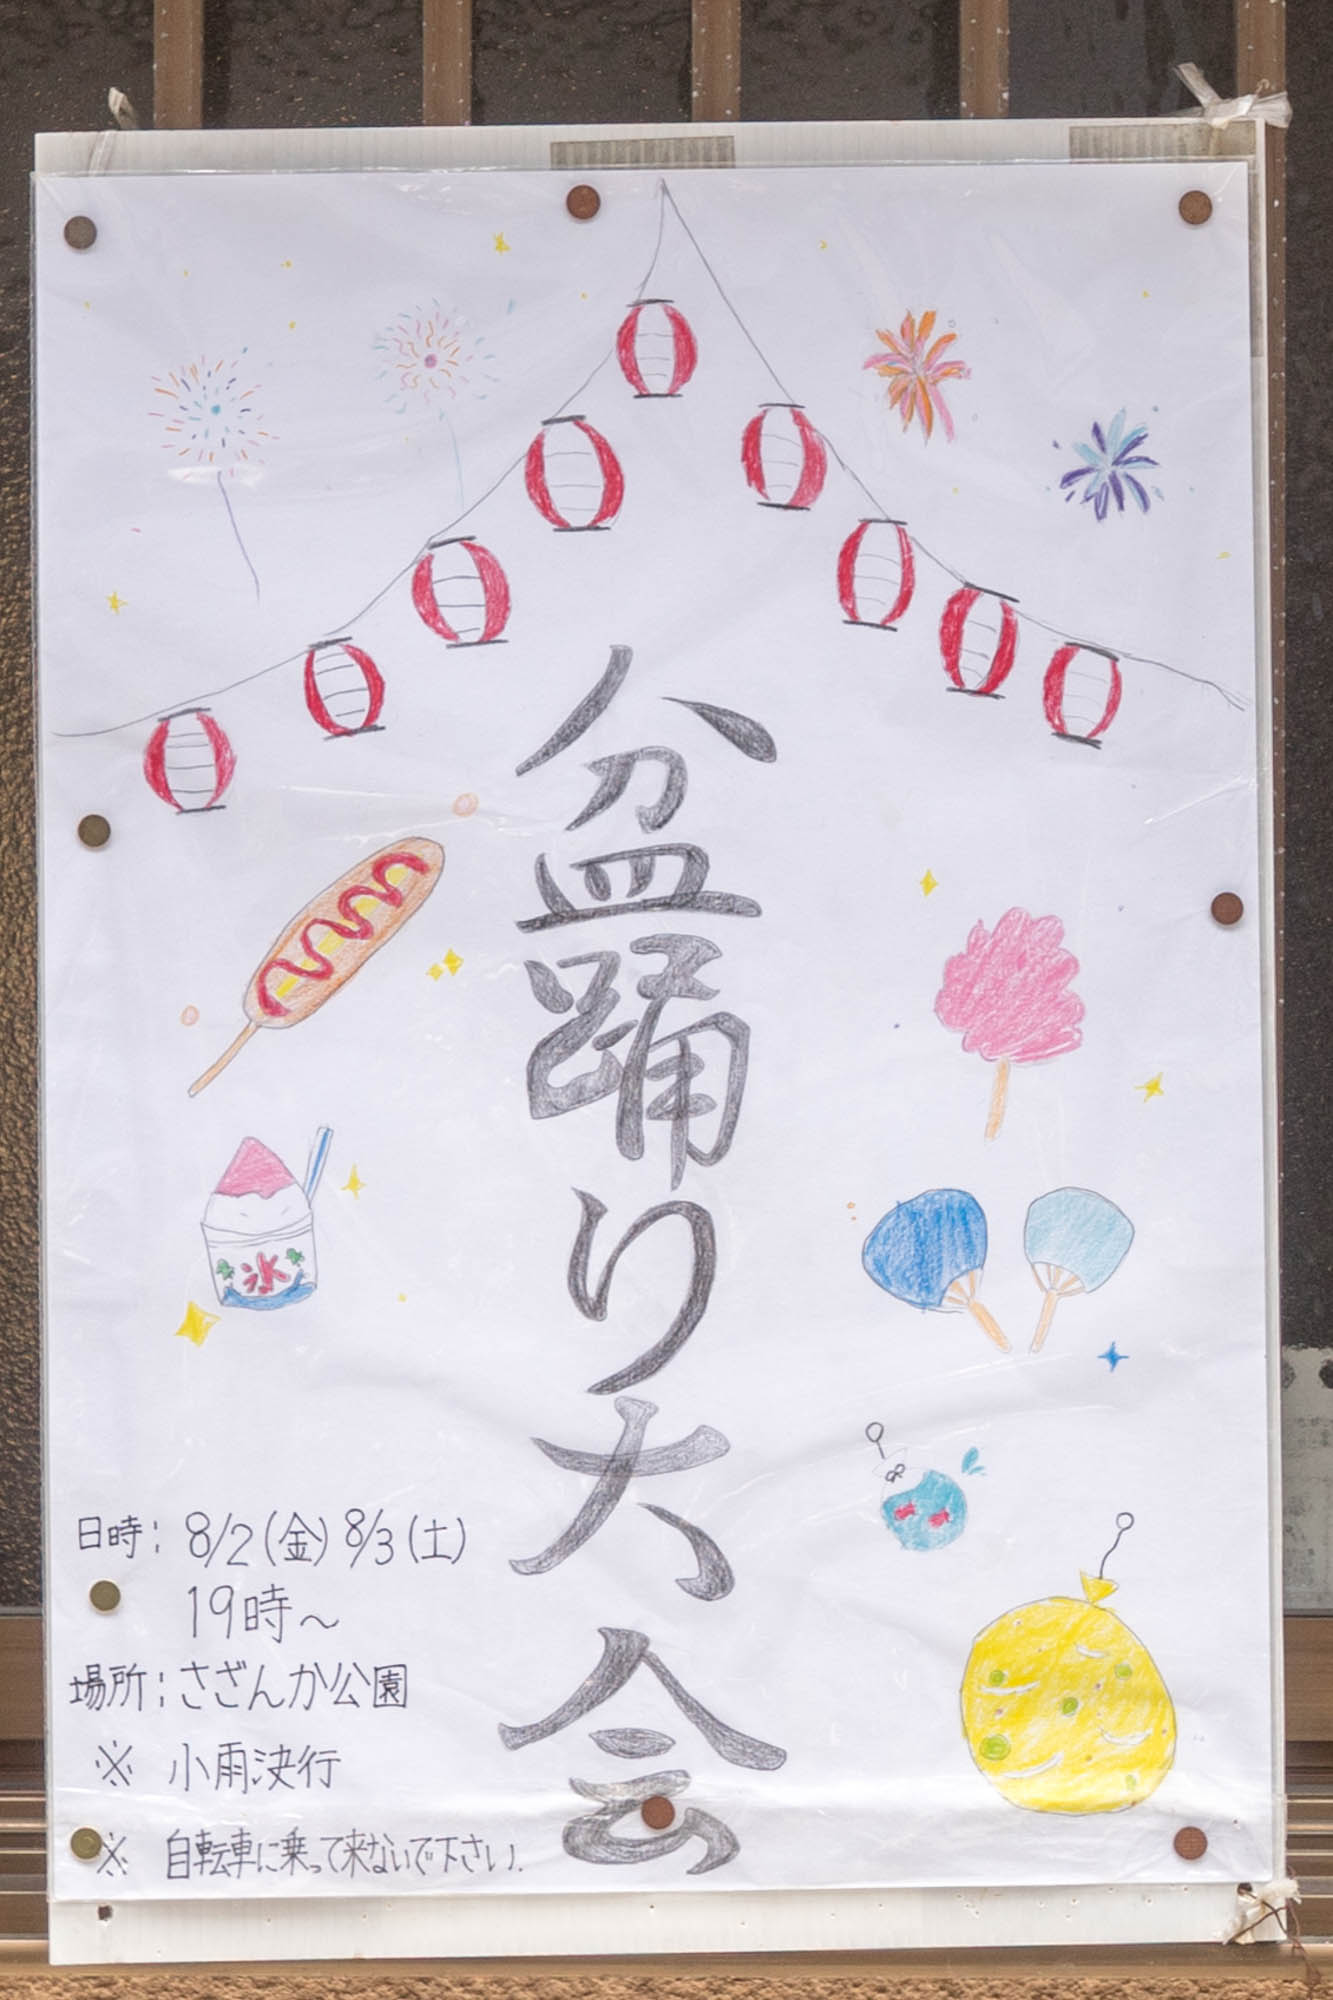 盆踊り大会
氷
日時：8/2（金）8/3（土）
19時～
場所：さざんか公園
※ 小雨決行
※ 自転車に乗って来ないで下さい.